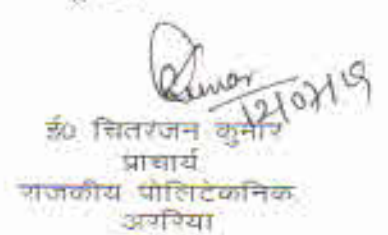 Kumar
12/07/19
ई० चितरंजन कुमार
प्राचार्य
राजकीय पोलिटेकनिक
अररिया